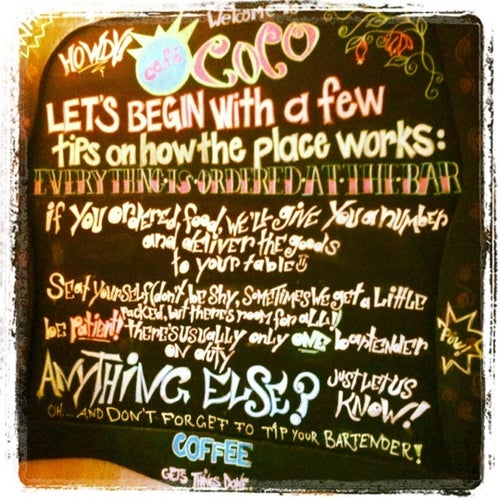 Welcome to
HOWDY café COCO
LET'S BEGIN With a few
tips on how the place works:
EVERYTHING·IS·ORDERED·AT·THE·BAR
if you ordered food, WE'LL GIVE You a number
and deliver the goods
to your table
Seat Yourself (don't be shy, Sometimes We get a Little
packed, but there's room for all!)
be Patient! there's usually only ONE bartender
ON duty
ANYTHING ELSE? JUST LET US
KNOW!
OH... AND DON'T FORGET TO TIP YOUR BARTENDER!
COFFEE
GETS THINGS DONE
POW!